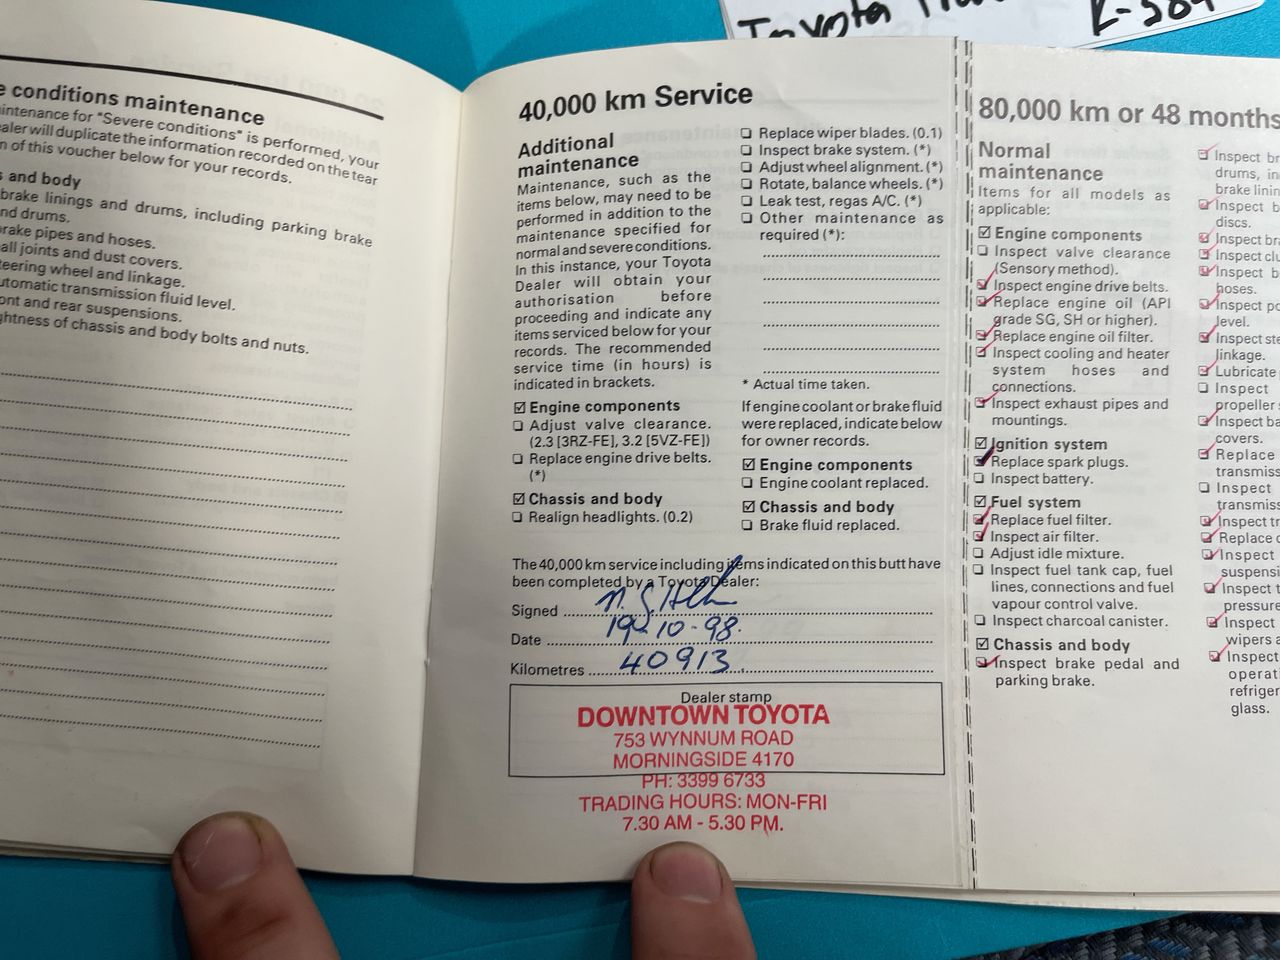 Toyota
K-
e conditions maintenance
intenance for "Severe conditions" is performed, your
ealer will duplicate the information recorded on the tear
n of this voucher below for your records.
s and body
brake linings and drums, including parking brake
nd drums.
brake pipes and hoses.
all joints and dust covers.
teering wheel and linkage.
utomatic transmission fluid level.
ont and rear suspensions.
ghtness of chassis and body bolts and nuts.
40,000 km Service
Additional
maintenance
Maintenance, such as the
items below, may need to be
performed in addition to the
maintenance specified for
normal and severe conditions.
In this instance, your Toyota
Dealer will obtain your
authorisation before
proceeding and indicate any
items serviced below for your
records. The recommended
service time (in hours) is
indicated in brackets.
☑ Engine components
❏ Adjust valve clearance.
(2.3 [3RZ-FE], 3.2 [5VZ-FE])
❏ Replace engine drive belts.
(*)
☑ Chassis and body
❏ Realign headlights. (0.2)
❏ Replace wiper blades. (0.1)
❏ Inspect brake system. (*)
❏ Adjust wheel alignment. (*)
❏ Rotate, balance wheels. (*)
❏ Leak test, regas A/C. (*)
❏ Other maintenance as
required (*):
* Actual time taken.
If engine coolant or brake fluid
were replaced, indicate below
for owner records.
☑ Engine components
❏ Engine coolant replaced.
☑ Chassis and body
❏ Brake fluid replaced.
The 40,000 km service including items indicated on this butt have
been completed by a Toyota Dealer:
Signed
Date 19-10-98.
Kilometres 40913
Dealer stamp
DOWNTOWN TOYOTA
753 WYNNUM ROAD
MORNINGSIDE 4170
PH: 3399 6733
TRADING HOURS: MON-FRI
7.30 AM - 5.30 PM.
80,000 km or 48 months
Normal
maintenance
Items for all models as
applicable:
☑ Engine components
❏ Inspect valve clearance
(Sensory method).
Inspect engine drive belts.
Replace engine oil (API
grade SG, SH or higher).
Replace engine oil filter.
Inspect cooling and heater
system hoses and
connections.
Inspect exhaust pipes and
mountings.
☑ Ignition system
Replace spark plugs.
❏ Inspect battery.
☑ Fuel system
Replace fuel filter.
Inspect air filter.
❏ Adjust idle mixture.
❏ Inspect fuel tank cap, fuel
lines, connections and fuel
vapour control valve.
❏ Inspect charcoal canister.
☑ Chassis and body
Inspect brake pedal and
parking brake.
Inspect br
drums, in
brake linin
Inspect b
discs.
Inspect bra
Inspect clu
Inspect b
hoses.
Inspect po
level.
Inspect ste
linkage.
Lubricate
❏ Inspect
propeller s
Inspect ba
covers.
Replace
transmiss
❏ Inspect
transmis
Inspect tr
Replace d
Inspect
suspensi
Inspect t
pressure
Inspect
wipers a
Inspect
operat
refriger
glass.